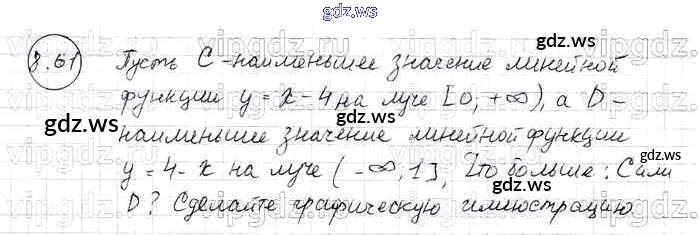 gdz.ws
8.61 Пусть C - наименьшее значение линейной
функции y = x - 4 на луче [0, +∞), а D -
наименьшее значение линейной функции
y = 4 - x на луче (-∞, 1]. Что больше: C или
D? Сделайте графическую иллюстрацию.
gdz.ws
gdz.ws
gdz.ws
gdz.ws
gdz.ws